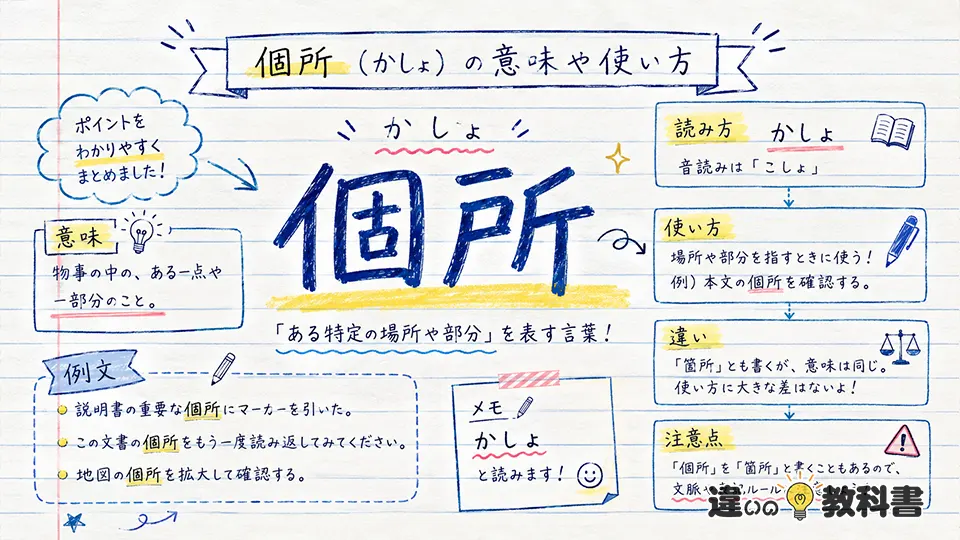 個所（かしょ）の意味や使い方
ポイントを
わかりやすく
まとめました！
かしょ
個所
「ある特定の場所や部分」を表す言葉！
意味
物事の中の、ある一点や
一部分のこと。
例文
説明書の重要な個所にマーカーを引いた。
この文書の個所をもう一度読み返してみてください。
地図の個所を拡大して確認する。
メモ
かしょ
と読みます！
読み方 かしょ
音読みは「こしょ」
使い方
場所や部分を指すときに使う！
例）本文の個所を確認する。
違い
「箇所」とも書くが、意味は同じ。
使い方に大きな差はないよ！
注意点
「個所」を「箇所」と書くこともあるので、
文脈や ルール
違いの教科書